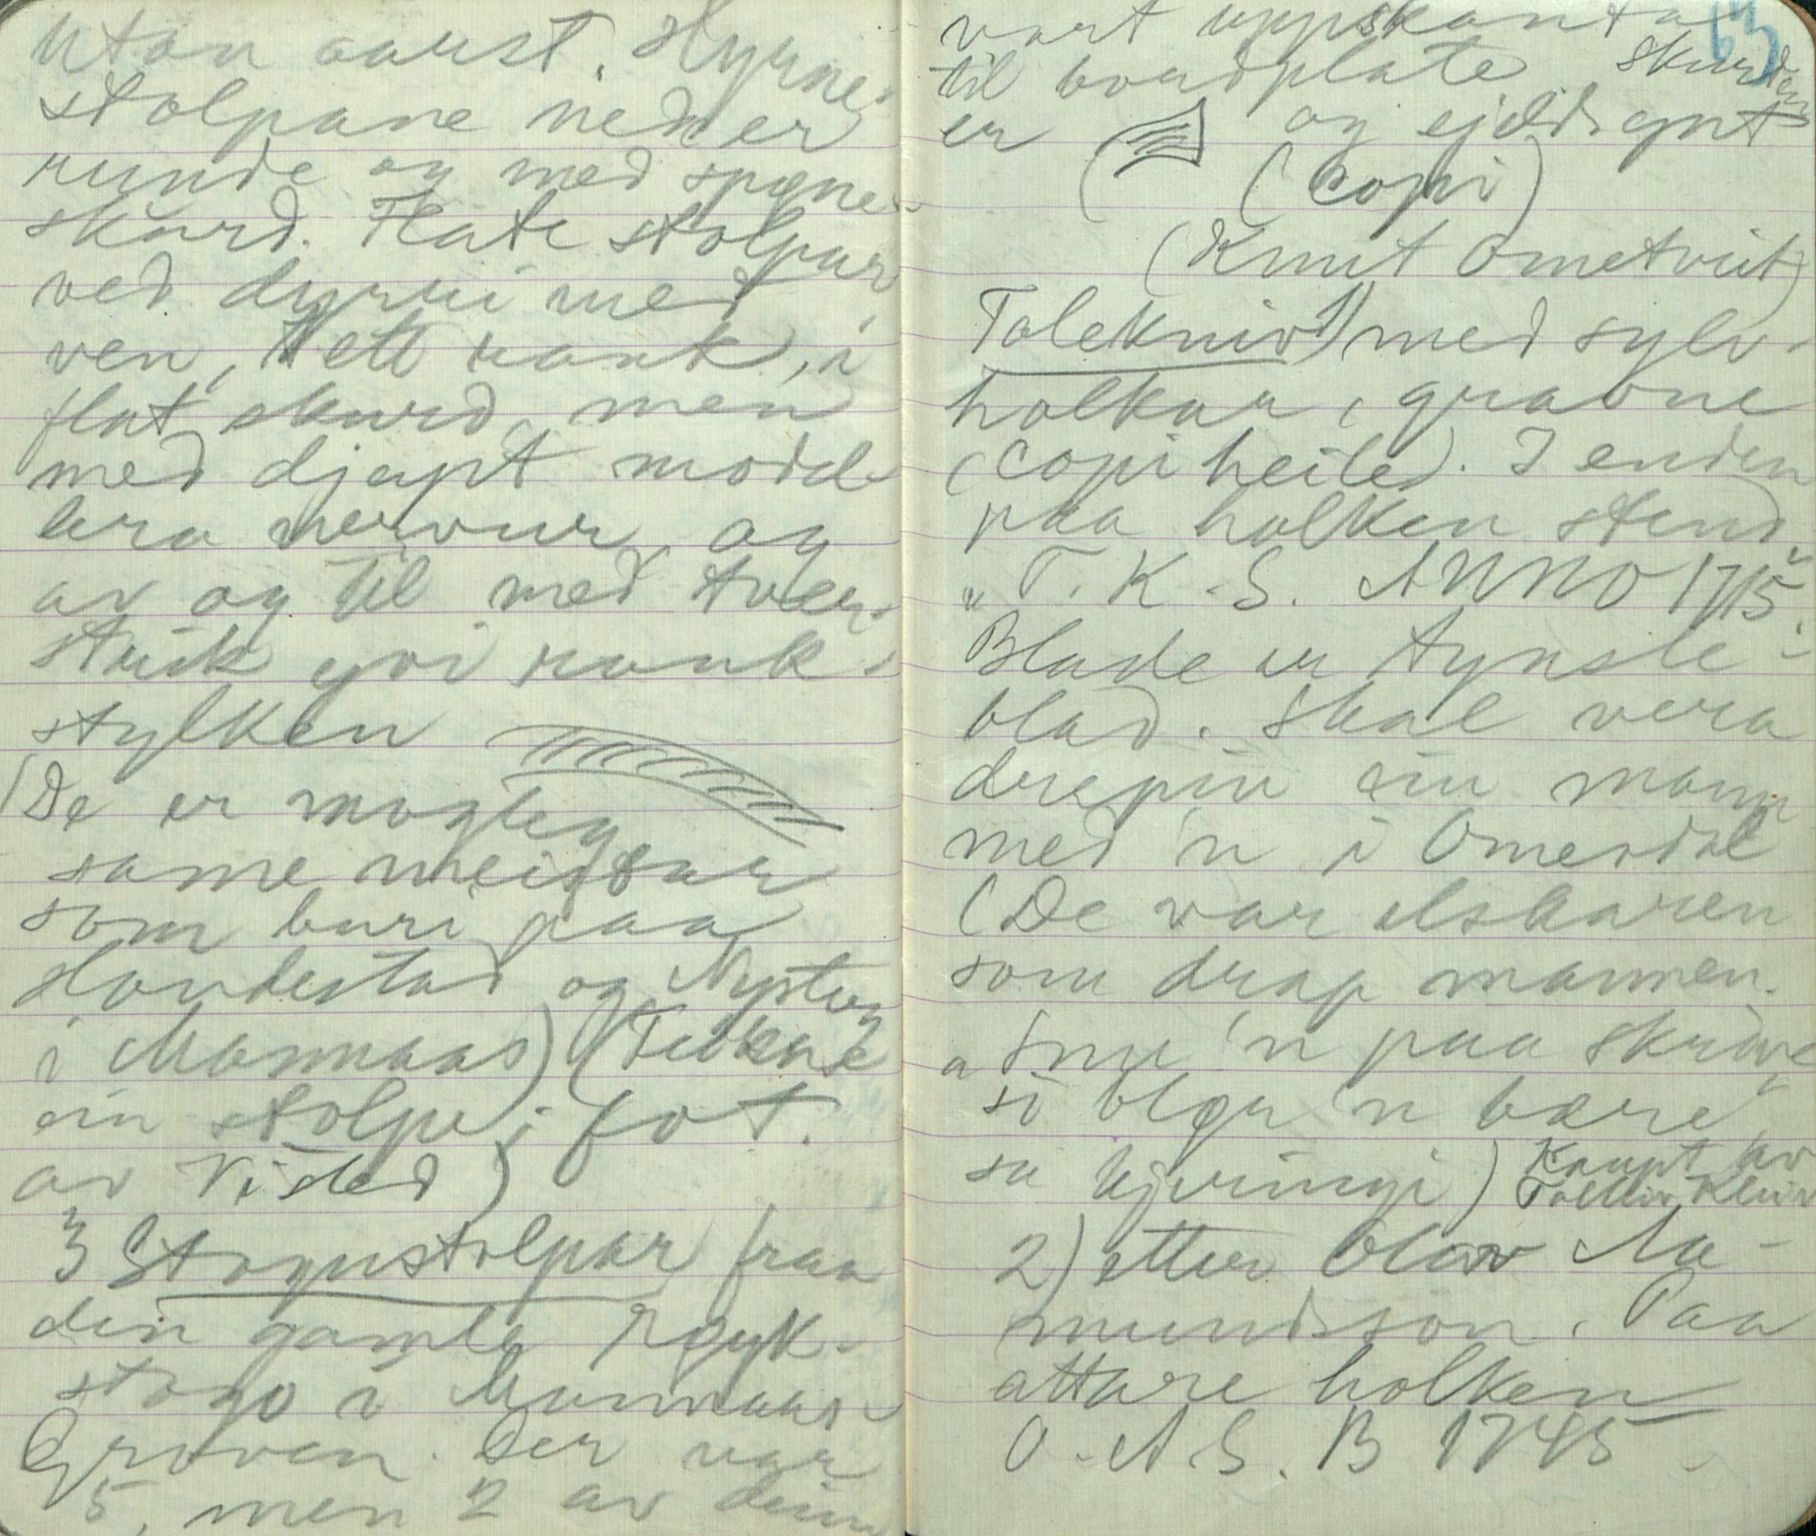 utan aarst. Hyrne-
stolpane neder
runde og med spøne-
skurd. Flate stolpar
ved dyrri med
ven, tett rank, i
flat skurd men
med djupt model-
lera nervur og
av og til med tver-
strik yvi rank-
stylken
(De er mogleg
same meistar
som buri paa
Handestad og Nystog
i Mannaas) (Teikne
ein stolpe; fot.
av Visted)
3 Stogustolpar fraa
den gamle røyk-
stogo i Mannaas-
Groven. Der var
5, men 2 av deim
63
vart uppskanta
til bordplate. Skurden
er og ejeldsynt
(Copi)
(Knut Ometvit)
Talekniv 1) med sylv-
holkar, gravne
(copi heile). I enden
paa holken stend
"T. K. S. ANNO 1715".
Blade er tynsle-
blad. Skal vera
drepin ein mann
med 'n i Omesdal
(De var elskaren
som drap mannen.
"Snu 'n paa skraave
so bløer 'n bære"
sa kjvringi) Kaupt av
2) etter Olav Aa-
mundsson. Paa
attare holken
O. A. S. B 1745.